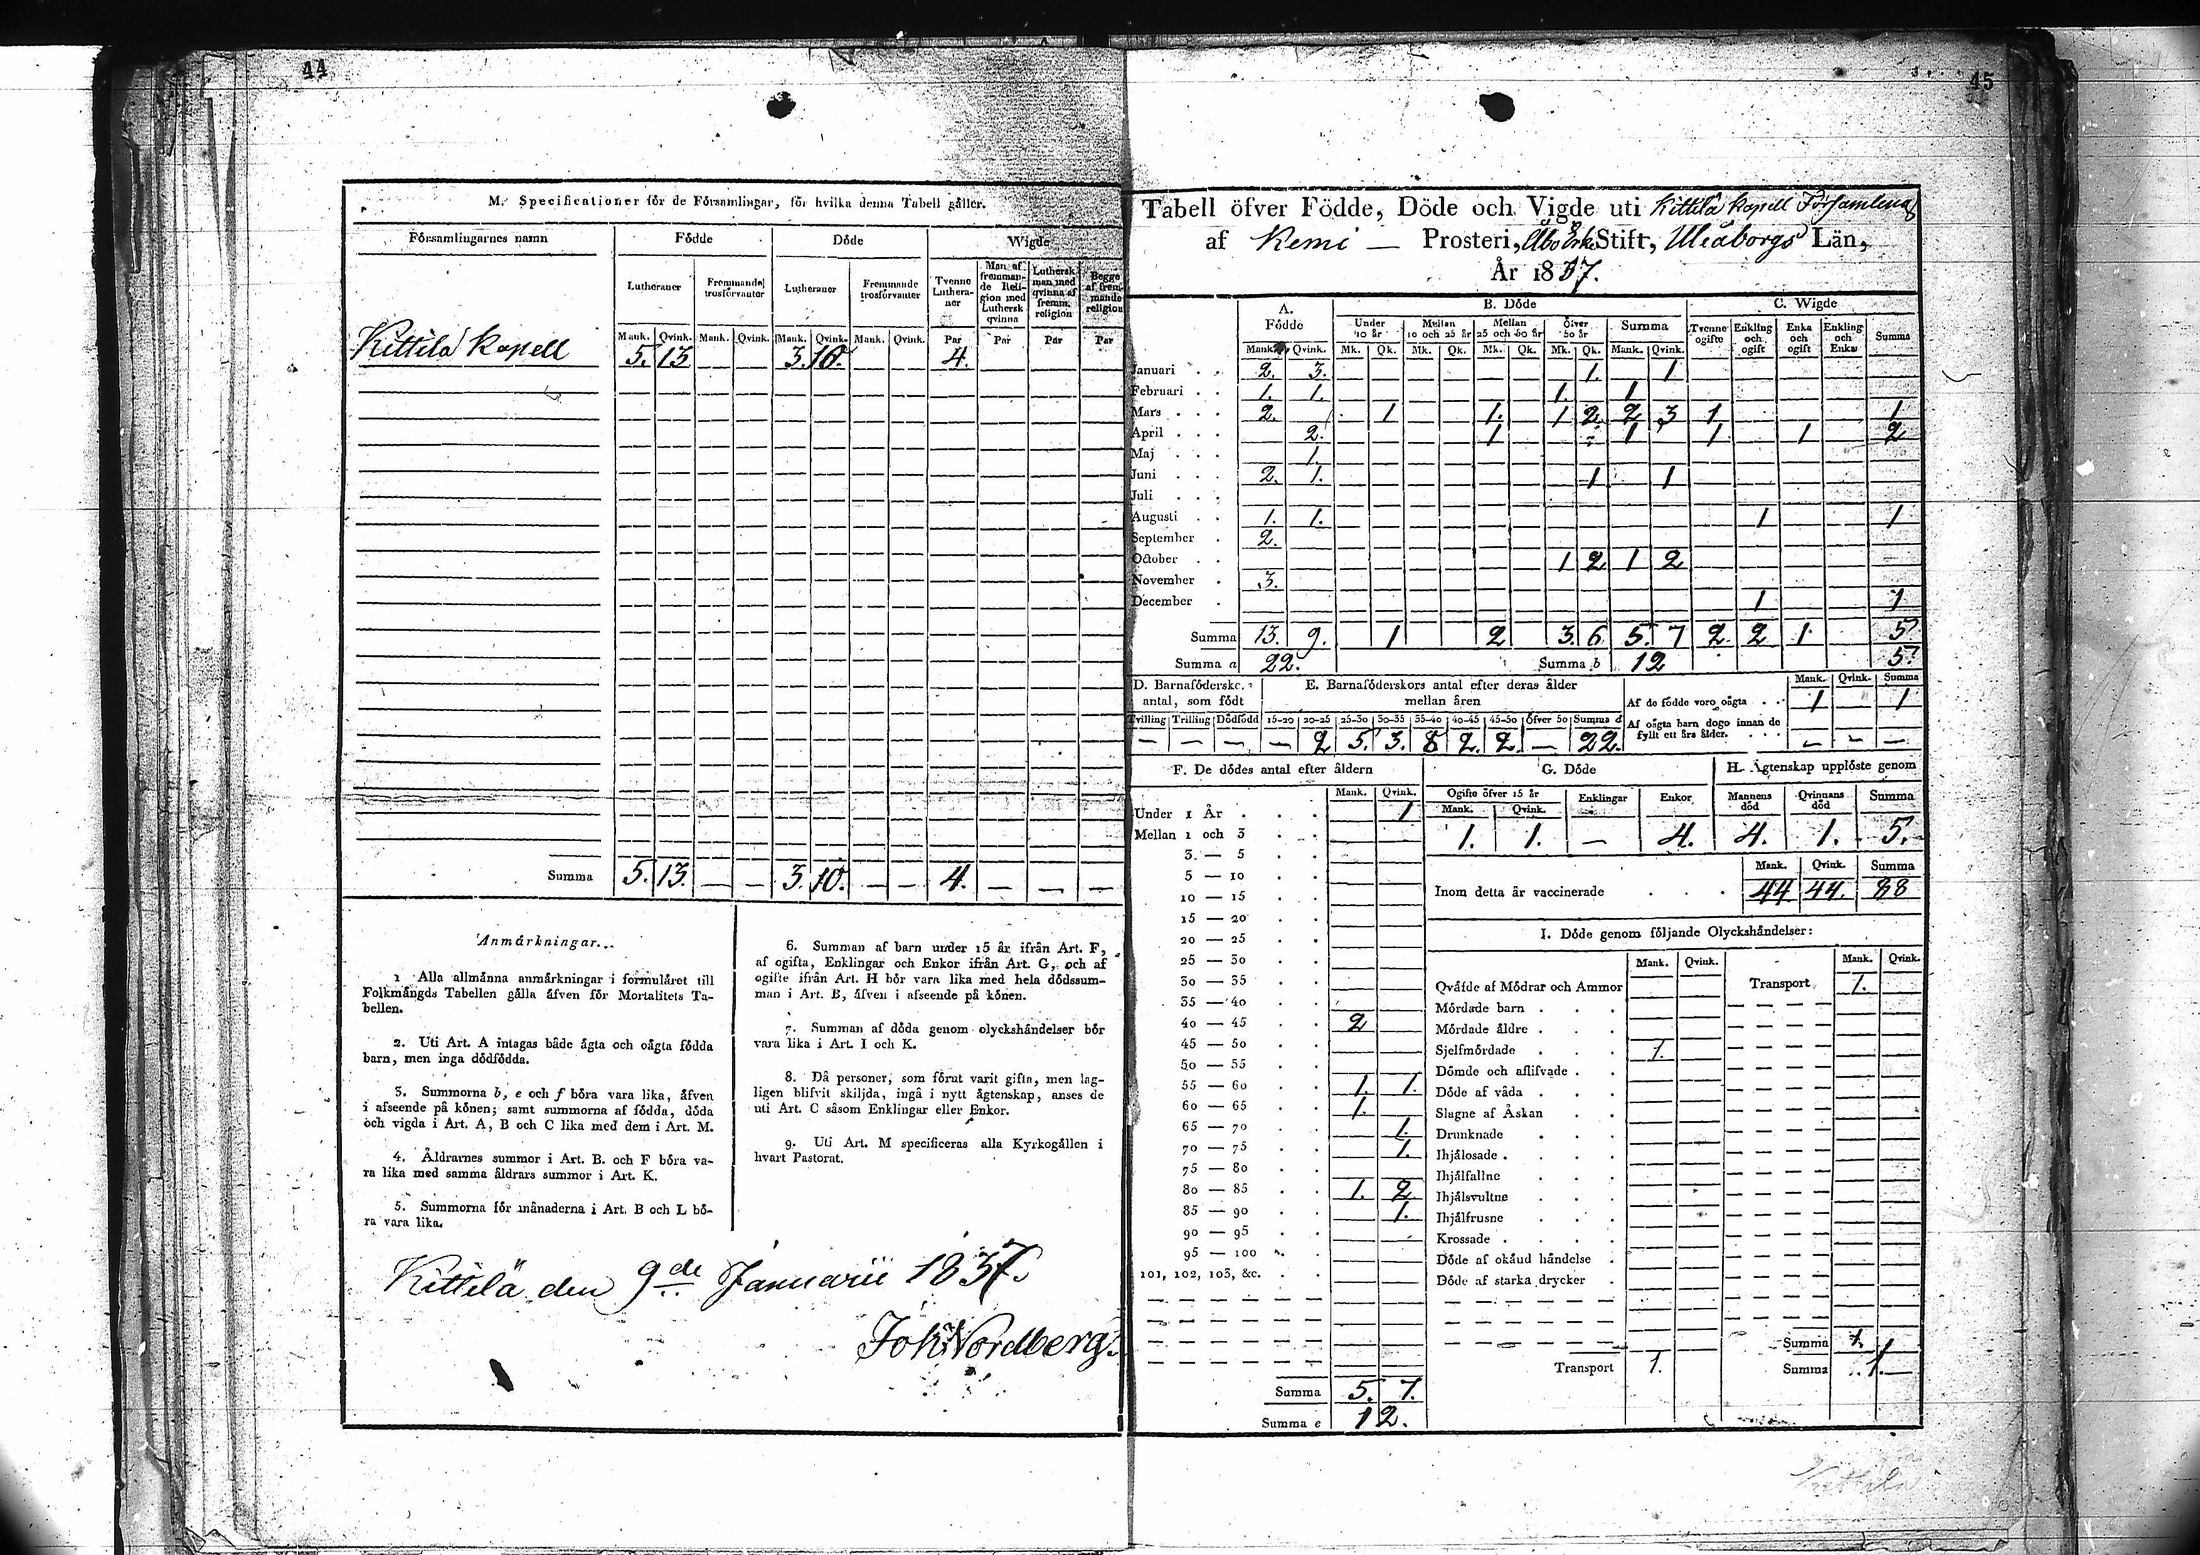 44
M. Specificationer för de Församlingar, för hvilka denna Tabell gäller.
Församlingarnes namn Födde Döde Wigde
Lutheraner Fremmande trosförvanter Lutheraner Fremmande trosförvanter Tvenne Lutheraner Man af fremmande Religion med Luthersk qvinna Luthersk man med qvinna af fremm. religion Begge af fremmande religion
Mank. Qvink. Mank. Qvink. Mank. Qvink. Mank. Qvink. Par Par Par Par
Kittilä Kapell 5. 13 3. 10. 4.
Summa 5. 13. — — 3. 10. — — 4. — — —
Anmärkningar.
1 Alla allmänna anmärkningar i formuläret till
Folkmängds Tabellen gälla äfven för Mortalitets Ta-
bellen.
2. Uti Art. A intagas både ägta och oägta födda
barn, men inga dödfödda.
3. Summorna b, e och f böra vara lika, äfven
i afseende på könen; samt summorna af födda, döda
och vigda i Art. A, B och C lika med dem i Art. M.
4. Åldrarnes summor i Art. B. och F böra va-
ra lika med samma åldrars summor i Art. K.
5. Summorna för månaderna i Art. B och L bö-
ra vara lika.
6. Summan af barn under 15 år ifrån Art. F,
af ogifta, Enklingar och Enkor ifrån Art. G, och af
ogifte ifrån Art. H bör vara lika med hela dödssum-
man i Art. B, äfven i afseende på könen.
7. Summan af döda genom olyckshändelser bör
vara lika i Art. I och K.
8. Då personer, som förut varit gifta, men lag-
ligen blifvit skiljda, ingå i nytt ägtenskap, anses de
uti Art. C såsom Enklingar eller Enkor.
9. Uti Art. M specificeras alla Kyrkogällen i
hvart Pastorat.
Kittilä den 9de Januarii 1837.
Joh: Nordberg.
45
Tabell öfver Födde, Döde och Vigde uti Kittilä Kapell Församling
af Kemi — Prosteri, Åbo Erke Stift, Uleåborgs Län,
År 1837.
A. Födde B. Döde C. Wigde
Under 10 år Mellan 10 och 25 år Mellan 25 och 50 år Öfver 50 år Summa Tvenne ogifte Enkling och ogift Enka och ogift Enkling och Enka Summa
Mank. Qvink. Mk. Qk. Mk. Qk. Mk. Qk. Mk. Qk. Mank. Qvink.
Januari 2. 3. 1. 1
Februari 1. 1. 1 1
Mars 2. 1 1. 1 2 2 3 1 1
April 2. 1 1 1 1 2
Maj 1.
Juni 2. 1. 1 1
Juli
Augusti 1. 1. 1 1
September 2.
October 1 2 1 2
November 3.
December 1 1
Summa 13. 9. 1 2 3. 6 5. 7 2. 2 1. 5
Summa a 22. Summa b 12 5.
D. Barnaföderskors antal, som födt
Tvilling Trilling Dödfödd
— — —
E. Barnaföderskors antal efter deras ålder
mellan åren
15-20 20-25 25-30 30-35 35-40 40-45 45-50 Öfver 50 Summa d
— 2 5. 3. 8 2. 2. — 22.
Mank. Qvink. Summa
Af de födde voro oägta 1 1
Af oägta barn dogo innan de
fyllt ett års ålder. — — —
F. De dödes antal efter åldern
Mank. Qvink.
Under 1 År 1
Mellan 1 och 3
3 — 5
5 — 10
10 — 15
15 — 20
20 — 25
25 — 30
30 — 35
35 — 40
40 — 45 2
45 — 50
50 — 55
55 — 60 1. 1.
60 — 65 1.
65 — 70 1.
70 — 75 1.
75 — 80
80 — 85 1. 2
85 — 90 1.
90 — 95
95 — 100
101, 102, 103, &c.
Summa 5. 7.
Summa e 12.
G. Döde
Ogifte öfver 15 år Enklingar Enkor
Mank. Qvink.
1. 1. — 4.
H. Ägtenskap upplöste genom
Mannens död Qvinnans död Summa
4. 1. 5.
Mank. Qvink. Summa
Inom detta år vaccinerade 44 44. 88
I. Döde genom följande Olyckshändelser:
Mank. Qvink. Mank. Qvink.
Qväfde af Mödrar och Ammor Transport 1.
Mördade barn
Mördade äldre
Sjelfmördade 1.
Dömde och aflifvade
Döde af våda
Slagne af Åskan
Drunknade
Ihjälosade
Ihjälfallne
Ihjälsvultne
Ihjälfrusne
Krossade
Döde af okäud händelse
Döde af starka drycker
Summa 1.
Transport 1. Summa 1.
Kittilä